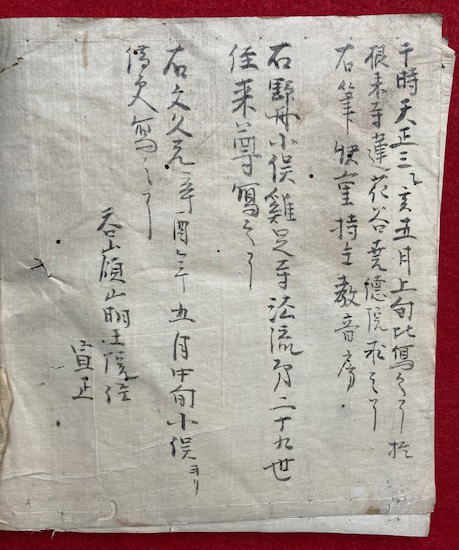 干時天正三乙亥五月上旬比寫之了於
根来寺蓮花谷尭德院求之了
右筆快重持主教音房
右野州小俣雞足寺法流為二十九世
住来尊寫之了
右文久元辛酉年五月中旬小俣ヨリ
借受寫之了
山明王院住
宣正